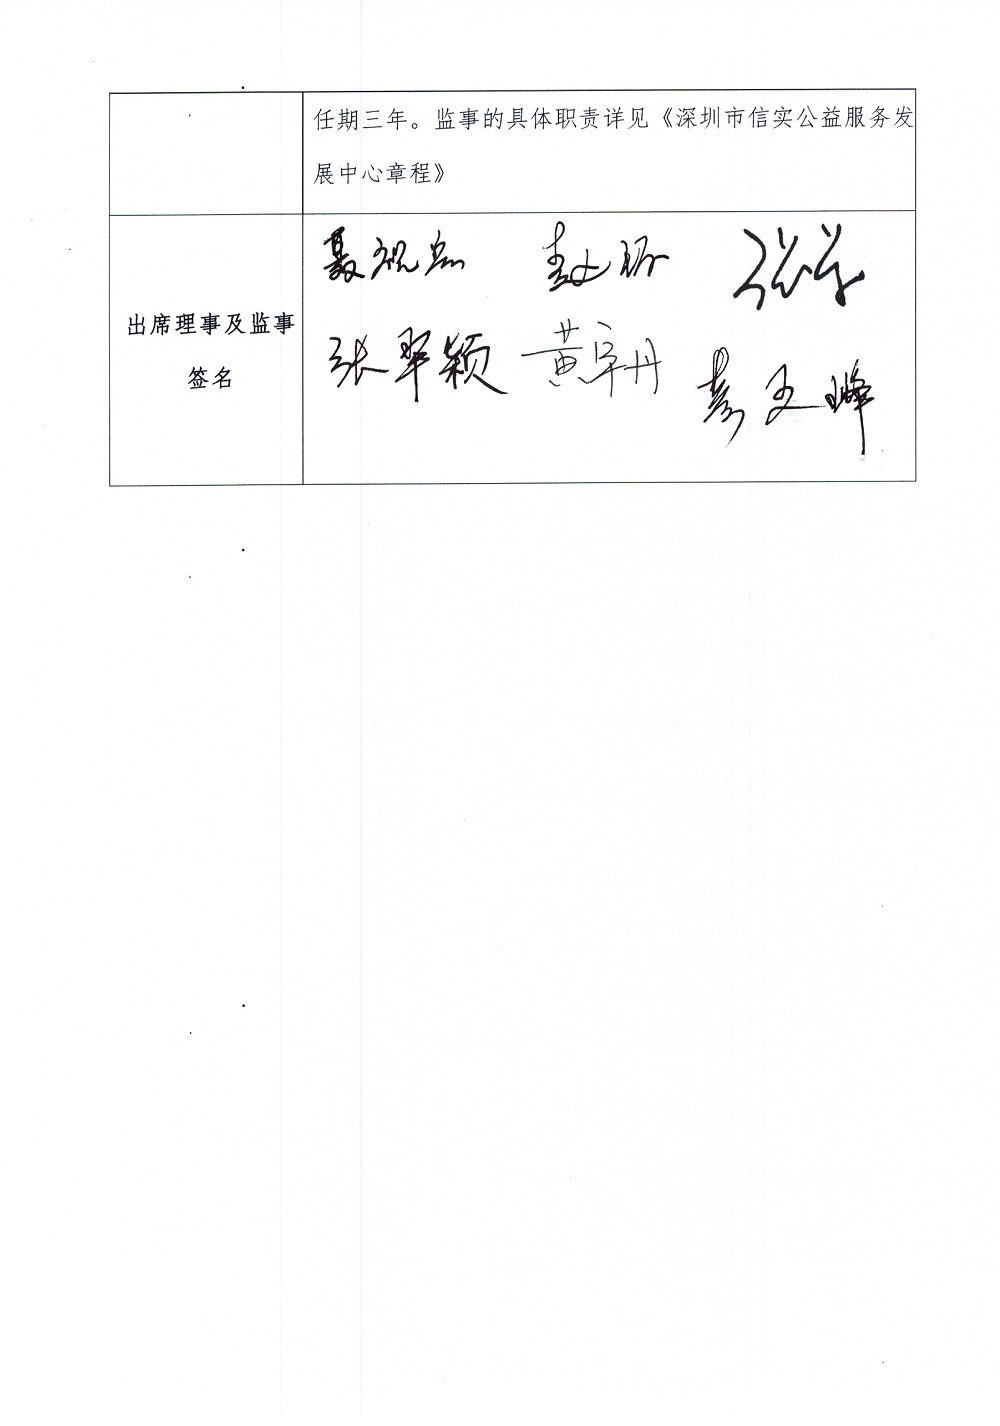 任期三年。监事的具体职责详见《深圳市信实公益服务发
展中心章程》
出席理事及监事
签名
张翠颖 黄宇丹
彭文峰